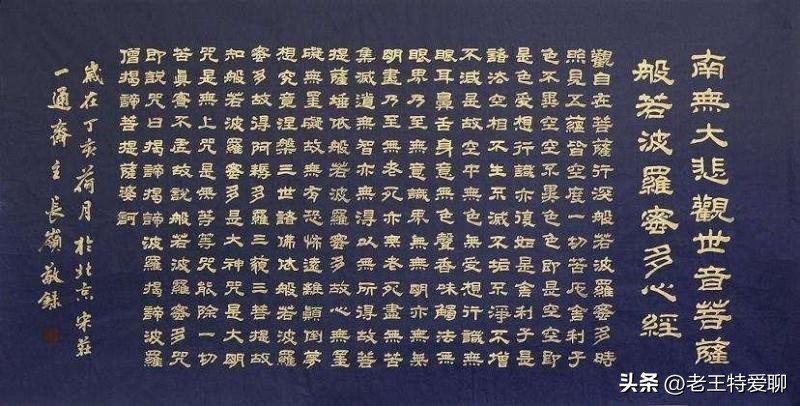 南無大悲觀世音菩薩
般若波羅蜜多心經
觀自在菩薩行深般若波羅蜜多時
照見五蘊皆空度一切苦厄舍利子
色不異空空不異色色即是空空即
是色受想行識亦復如是舍利子是
諸法空相不生不滅不垢不淨不增
不減是故空中無色無受想行識無
眼耳鼻舌身意無色聲香味觸法無
眼界乃至無意識界無無明亦無無
明盡乃至無老死亦無老死盡無苦
集滅道無智亦無得以無所得故菩
提薩埵依般若波羅蜜多故心無罣
礙無罣礙故無有恐怖遠離顛倒夢
想究竟涅槃三世諸佛依般若波羅
蜜多故得阿耨多羅三藐三菩提故
知般若波羅蜜多是大神咒是大明
咒是無上咒是無等等咒能除一切
苦真實不虛故說般若波羅蜜多咒
即說咒曰揭諦揭諦波羅揭諦波羅
僧揭諦菩提薩婆訶
歲在丁亥荷月於北京宋莊
一通齋主長嶺敬錄
头条 @老王特爱聊